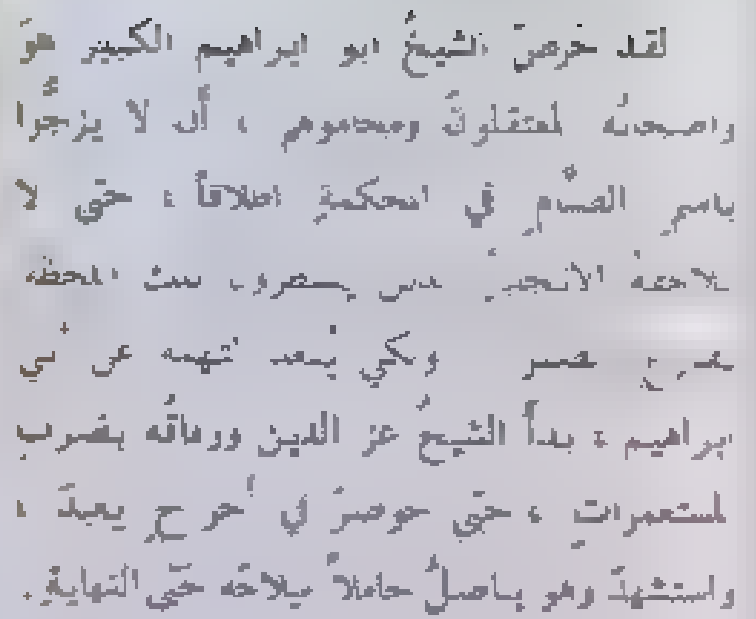 لقد حرصَ الشيخُ ابو ابراهيم الكبير هوَ
واصحابُه المعتقلونَ ومحاموهم ، أن لا يزجُّوا
باسمِ القسّامِ في المحكمةِ اطلاقاً ؛ حتى لا
الانجليز
وكي تهمه عن أبي
ابراهيم ؛ بدأَ الشيخُ عز الدين ورفاقُه بضربِ
المستعمراتِ ، حتى حوصرَ في أحراجِ يعبدَ ،
واستشهدَ وهو يناضلُ حاملاً سلاحَه حتى النهايةِ .